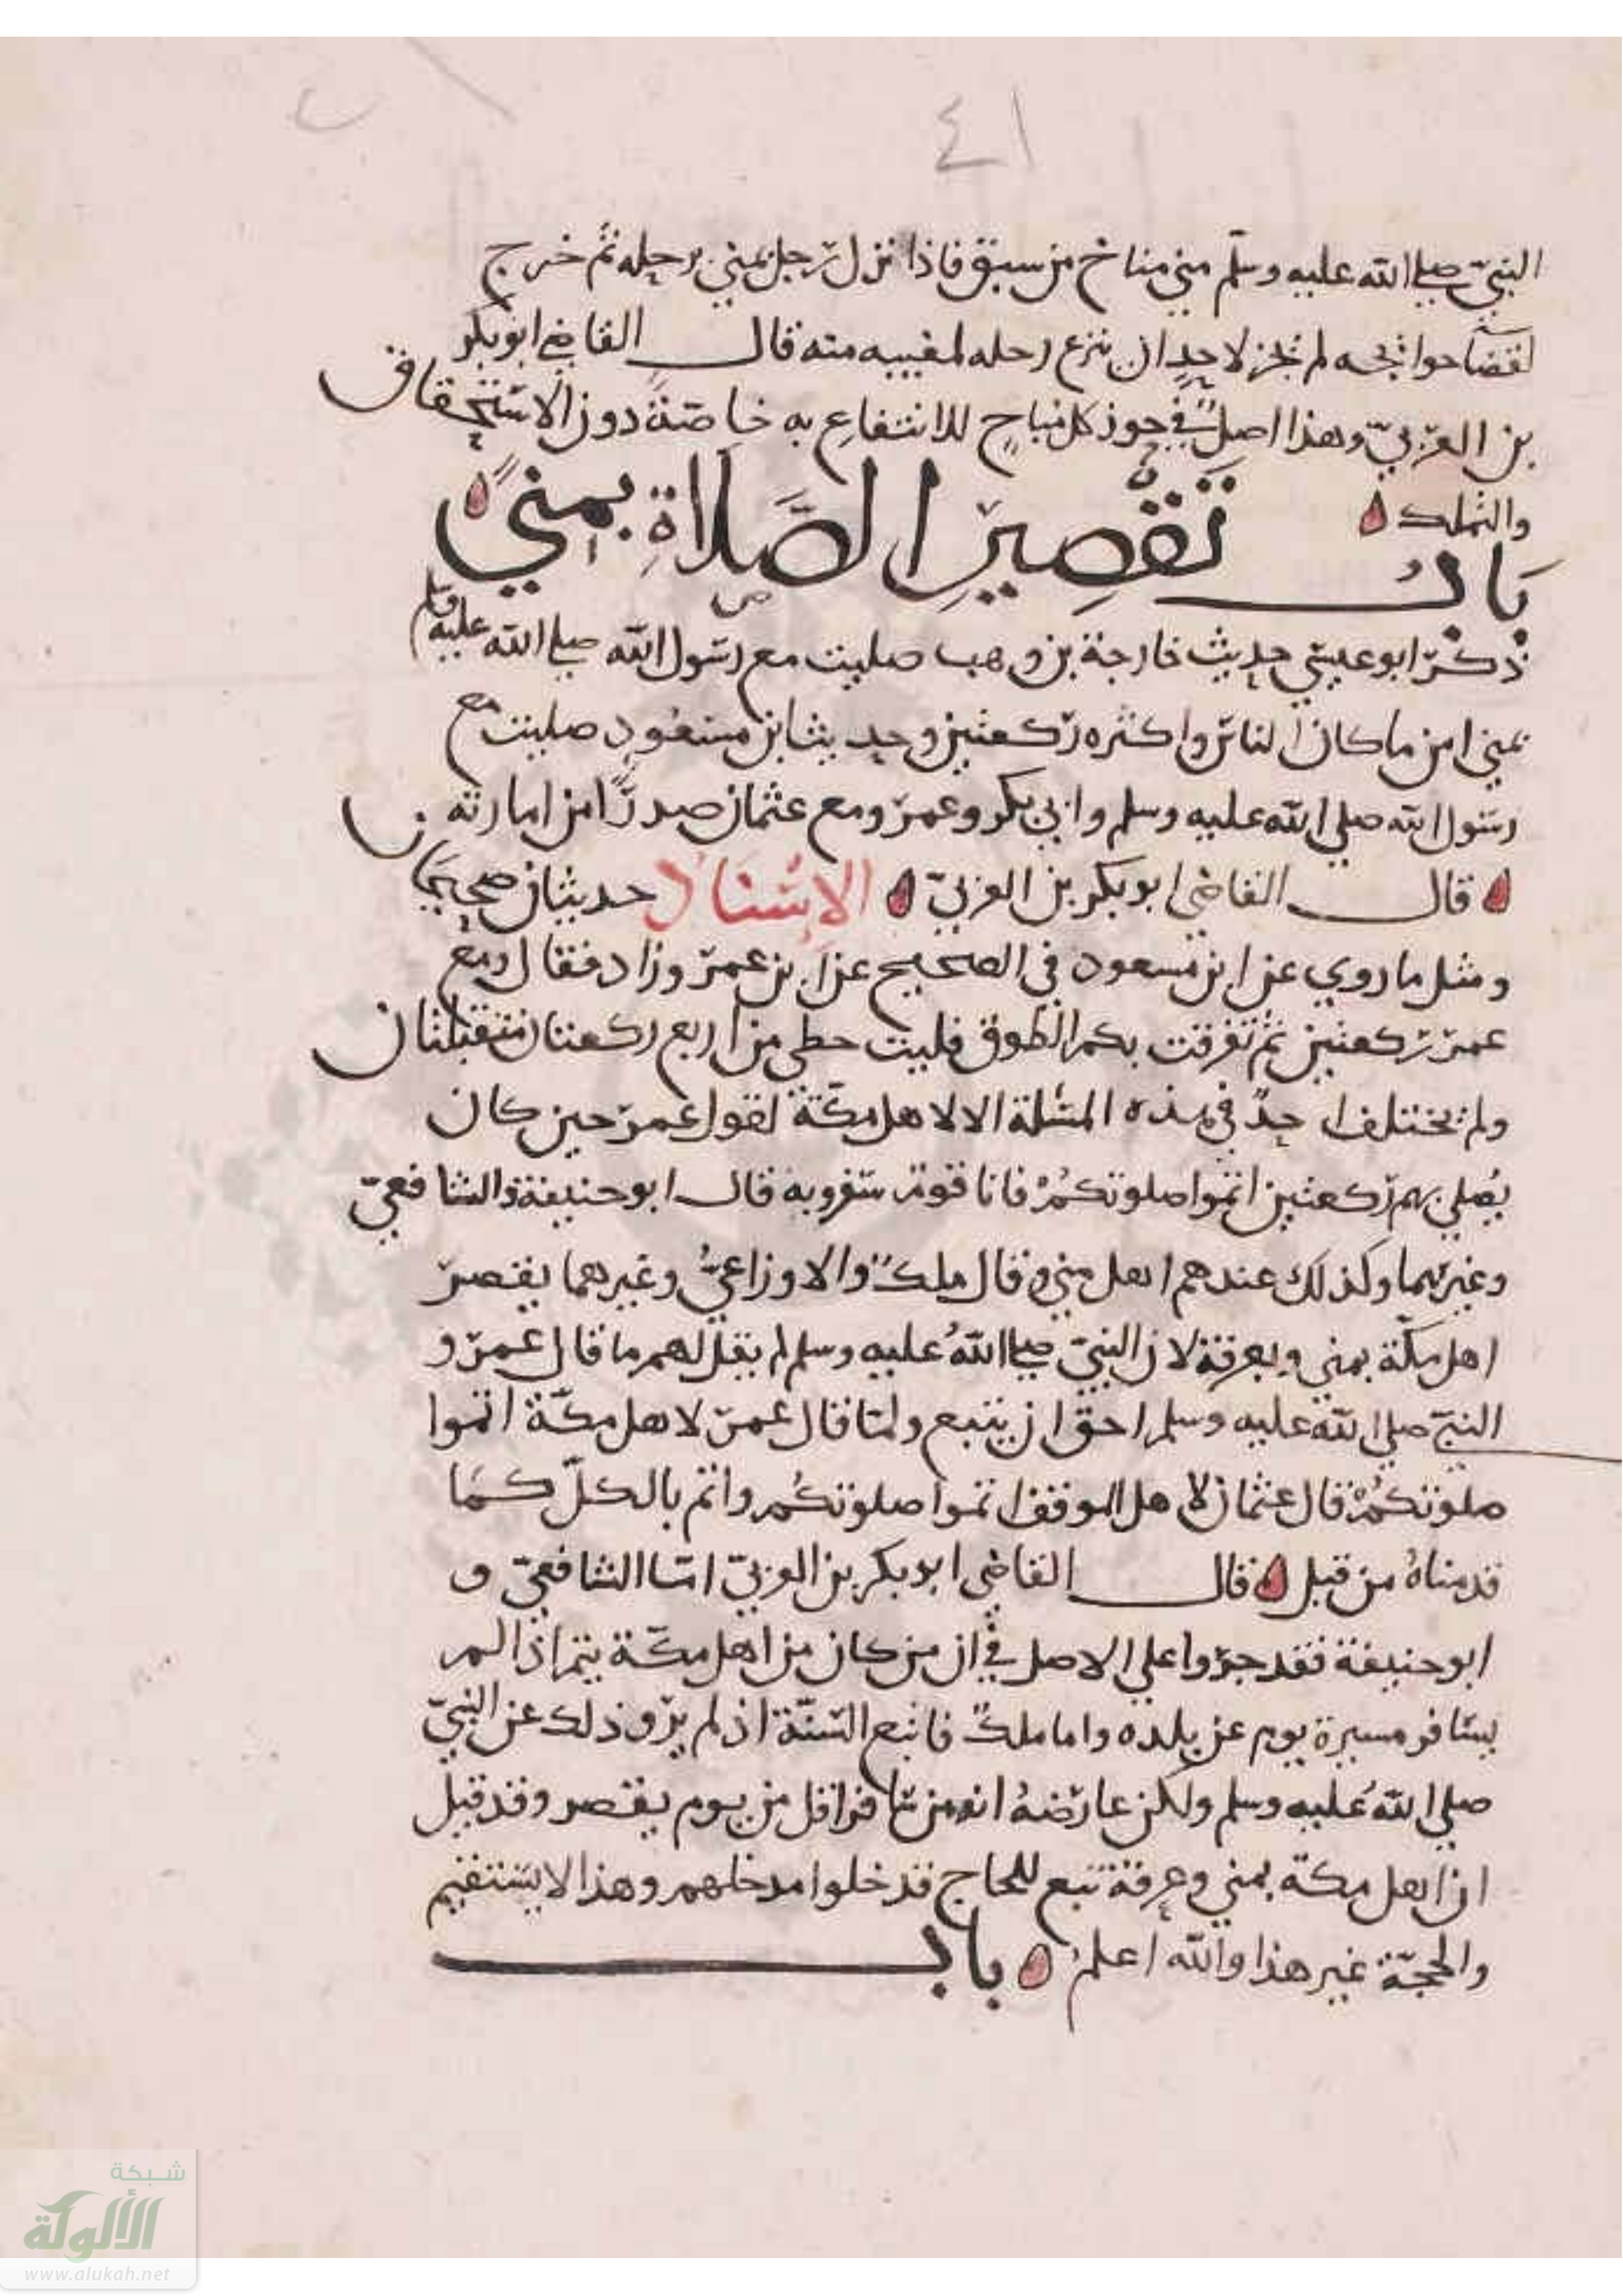 ٤١
النبيّ صلي الله عليه وسلّم مني مناخ من سبق فاذا نزل رجل بمني برحله ثم خرج
لقضا حوائجه لم يجز لاحدٍ ان ينزع رحله لمغيبه منه قال القاضي ابو بكر
بن العربيّ وهذا اصلٌ في جوز كل مباحٍ للانتفاع به خاصّةً دون الاستحقاق
والتملك
بابُ تقصير الصّلاة بمنيً
ذكر ابو عيسي حديث خارجة بن وهب صليت مع رسول الله صلي الله عليه وسلم
بمني امن ما كان الناس واكثره ركعتين وحديث ابن مسعود صليت مع
رسول الله صلي الله عليه وسلم وابي بكر وعمر ومع عثمان صدرًا من امارته
قال القاضي ابو بكر بن العربيّ الاسناد حديثان صحيحان
ومثل ما روي عن ابن مسعود في الصحيح عن ابن عمر وزاد فقال ومع
عمر ركعتين ثم تفرقت بكم الطوق فليت حطي من اربع ركعتان متقبلتان
ولم يختلف احدٌ في هذه المسئلة الا لاهل مكّة لقول عمر حين كان
يُصلي بهم ركعتين اتموا صلوتكمْ فانا قوم سفر وبه قال ابو حنيفة والشافعيّ
وغيرهما وكذلك عندهم اهل مني وقال ملكٌ والاوزاعيُّ وغيرهما يقصر
اهل مكّة بمني وبعرفة لان النبيّ صلي اللهُ عليه وسلم لم يقل لهم ما قال عمر و
النبيّ صلي الله عليه وسلم احق ان يتبع ولمّا قال عمر لاهل مكّة اتموا
صلوتكمْ قال عثمان لاهل الموقف اتموا صلوتكم واتم بالكلّ كما
قدمناهُ من قبل قال القاضي ابو بكر بن العربيّ امّا الشافعيّ و
ابو حنيفة فقد جروا علي الاصل في ان من كان من اهل مكّة يتم اذا لم
يسافر مسيرة يوم عن بلده واما ملكٌ فاتبع السّنّة اذ لم يرو ذلك عن النبيّ
صلي اللهُ عليه وسلم ولكن عارضهُ انه من سافر اقل من يوم يقصر وقد قيل
ان اهل مكّة بمني وعرفة تبع للحاج فدخلوا مدخلهم وهذا لا يستقيم
والحجّة غير هذا والله اعلم باب
شبكة
الألوكة
www.alukah.net